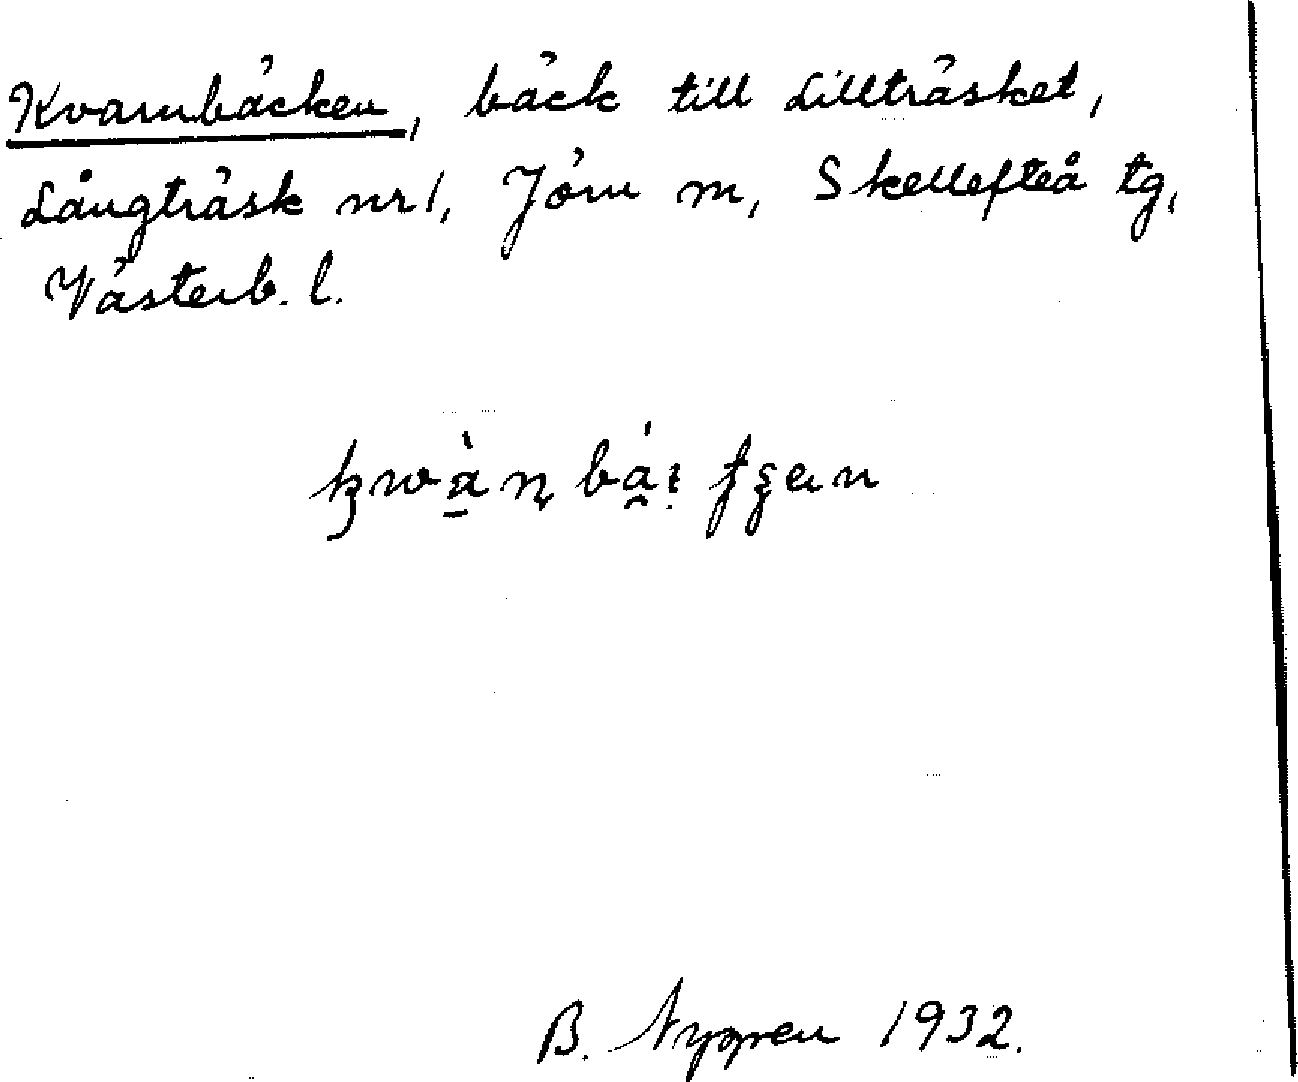 Kvarnbäcken, bäck till Lillträsket,
Långträsk nr 1, Jörn m, Skellefteå tg,
Västerb. l.
B. Nygren 1932.